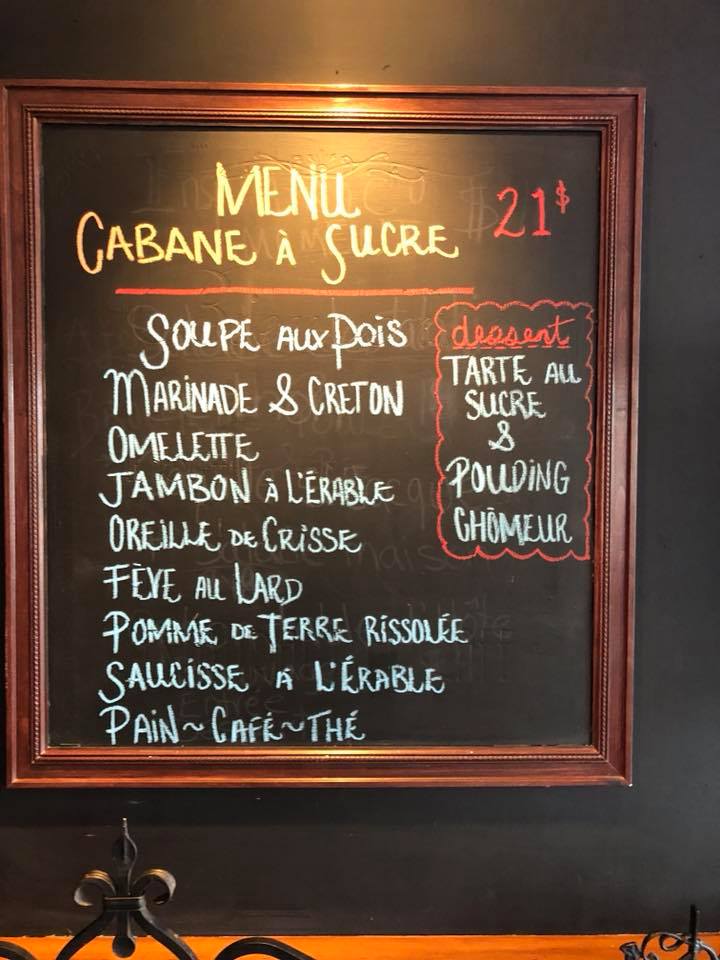 MENU
CABANE À SUCRE
21$
SOUPE AUX POIS
MARINADE & CRETON
OMELETTE
JAMBON À L'ÉRABLE
OREILLE DE CRISSE
FÈVE AU LARD
POMME DE TERRE RISSOLÉE
SAUCISSE À L'ÉRABLE
PAIN~CAFÉ~THÉ
dessert
TARTE AU
SUCRE
&
POUDING
CHÔMEUR